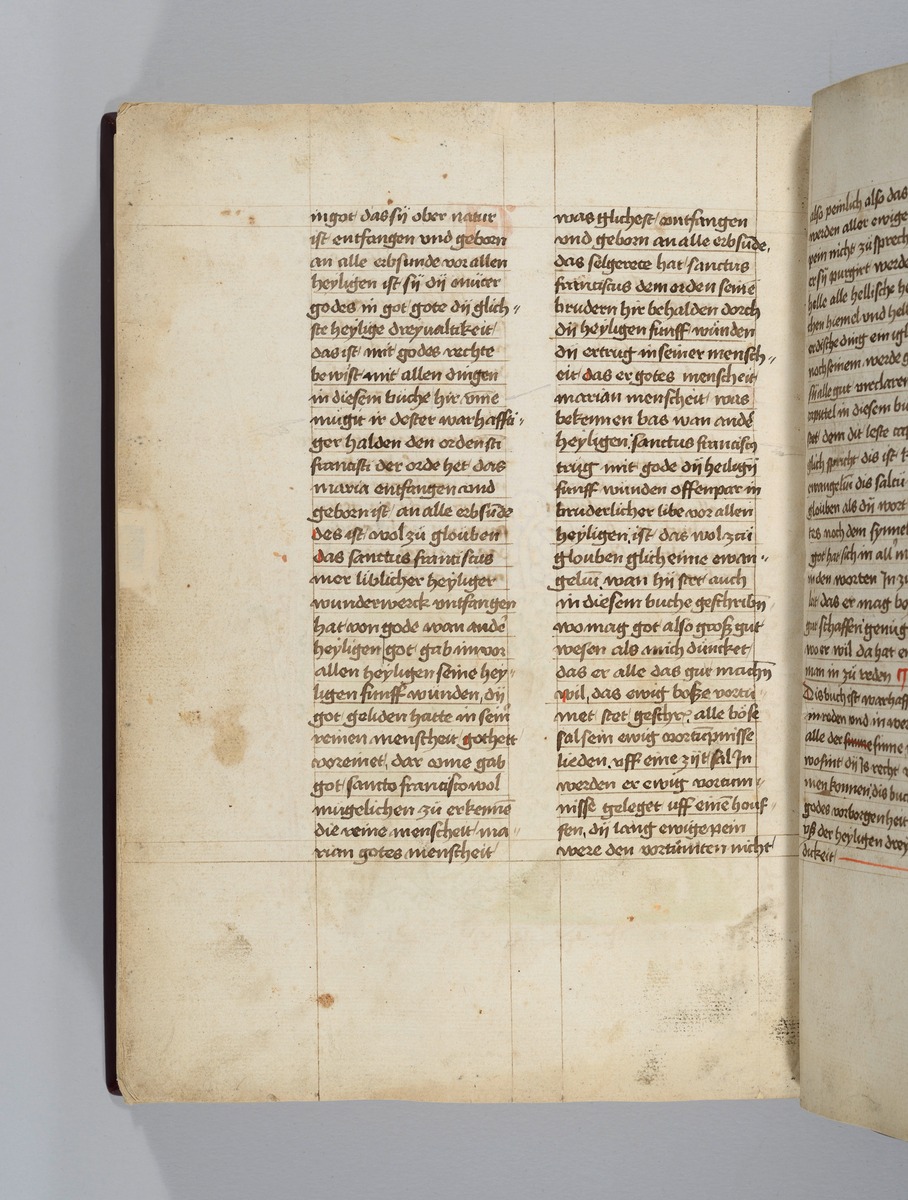 in got das sij ober natur
ist entfangen vnd geborn
an alle erbsunde vor allen
heyligen ist sij dij muter
godes in got gote dij glich-
ste heylige dreyualtikeit
das ist mit godes rechte
bewist mit allen dingen
in diesem buche hir vme
mugit ir dester warhaffti-
ger halden den orden sti
francisci der orde het das
maria entfangen vnd
geborn ist an alle erbsūde
des ist wol zu glouben
das sanctus franciscus
mer liblicher heyliger
wunderwerck entfangen
hat von gode wan andē
heyligen got gab im vor
allen heyligen seine hey-
ligen funff wunden, dij
got geliden hatte in sein
reinen menscheit gotheit
voreinet, dar vme gab
got sancto francisco wol
mugelichen zu erkennē
die reine menscheit ma-
rian gotes menscheit
was glichest entfangen
vnd geborn an alle erbsūde,
das selgerete hat sanctus
franciscus dem orden seine
brudern hir behalden dorch
dij heyligen funff wunden
dij ertrug in seiner mensch-
eit das er gotes menscheit
marian menscheit was
bekennen bas wan andē
heyligen, sanctus francisc9
trug mit gode dij heiligē
funff wunden offenpar in
bruderlicher libe vor allen
heyligen, ist das wol zcu
glouben glich eime ewan-
geliū wan hij stet auch
in diesem buche geschribn
wo mag got also groß gut
wesen als mich duncket
das er alle das gut machn
wil, das ewig boße vortu-
met stet geschr, alle böse
sal sein ewig vortupnisse
lieden, vff eine zijt sal In
werden er ewig vortum-
nisse geleget uff einē houf-
fen, dij lang ewige pein
were den vortūmten nicht
also peinlich also das
werden aller ewige
pein nicht zu sprech
er sij purgirt werde
helle alle hellische
chen hiemel vnd hell
erdische ding ein igl
noch seinem werde
sij alle gut vreclaren
capitel in diesem bu
stet dem dit leste cap
glich spricht dis ist
ewangeliū dis salt
glouben als dij wort
tes noch dem synnes
got hat sich in all
in den worten In zu
lat das er mag bo
gut schaffen genug
wo er wil da hat er
man in zu reden
Dis buch ist warhaf
in reden vnd in wer
alle der sinne sinne
wo sint dij Is recht
men konnen dis buc
godes vorborgenheit
vß der heyligen drey
dickeit